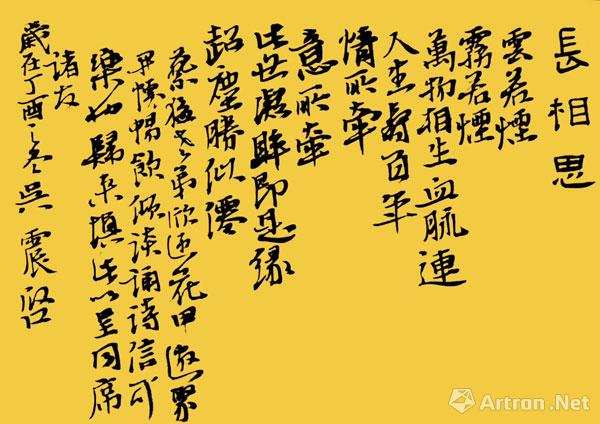 長相思
雲若煙
霧若煙
萬物相生血脈連
人生百年
情所牽
意所牽
此世凝眸即是緣
超塵勝似僊
蔡猛老弟欣迎花甲邀眾
懷暢飲傾談誦詩信可
樂也歸來填此以呈同席
諸友
歲在丁酉之冬吳震啓
Artron.Net